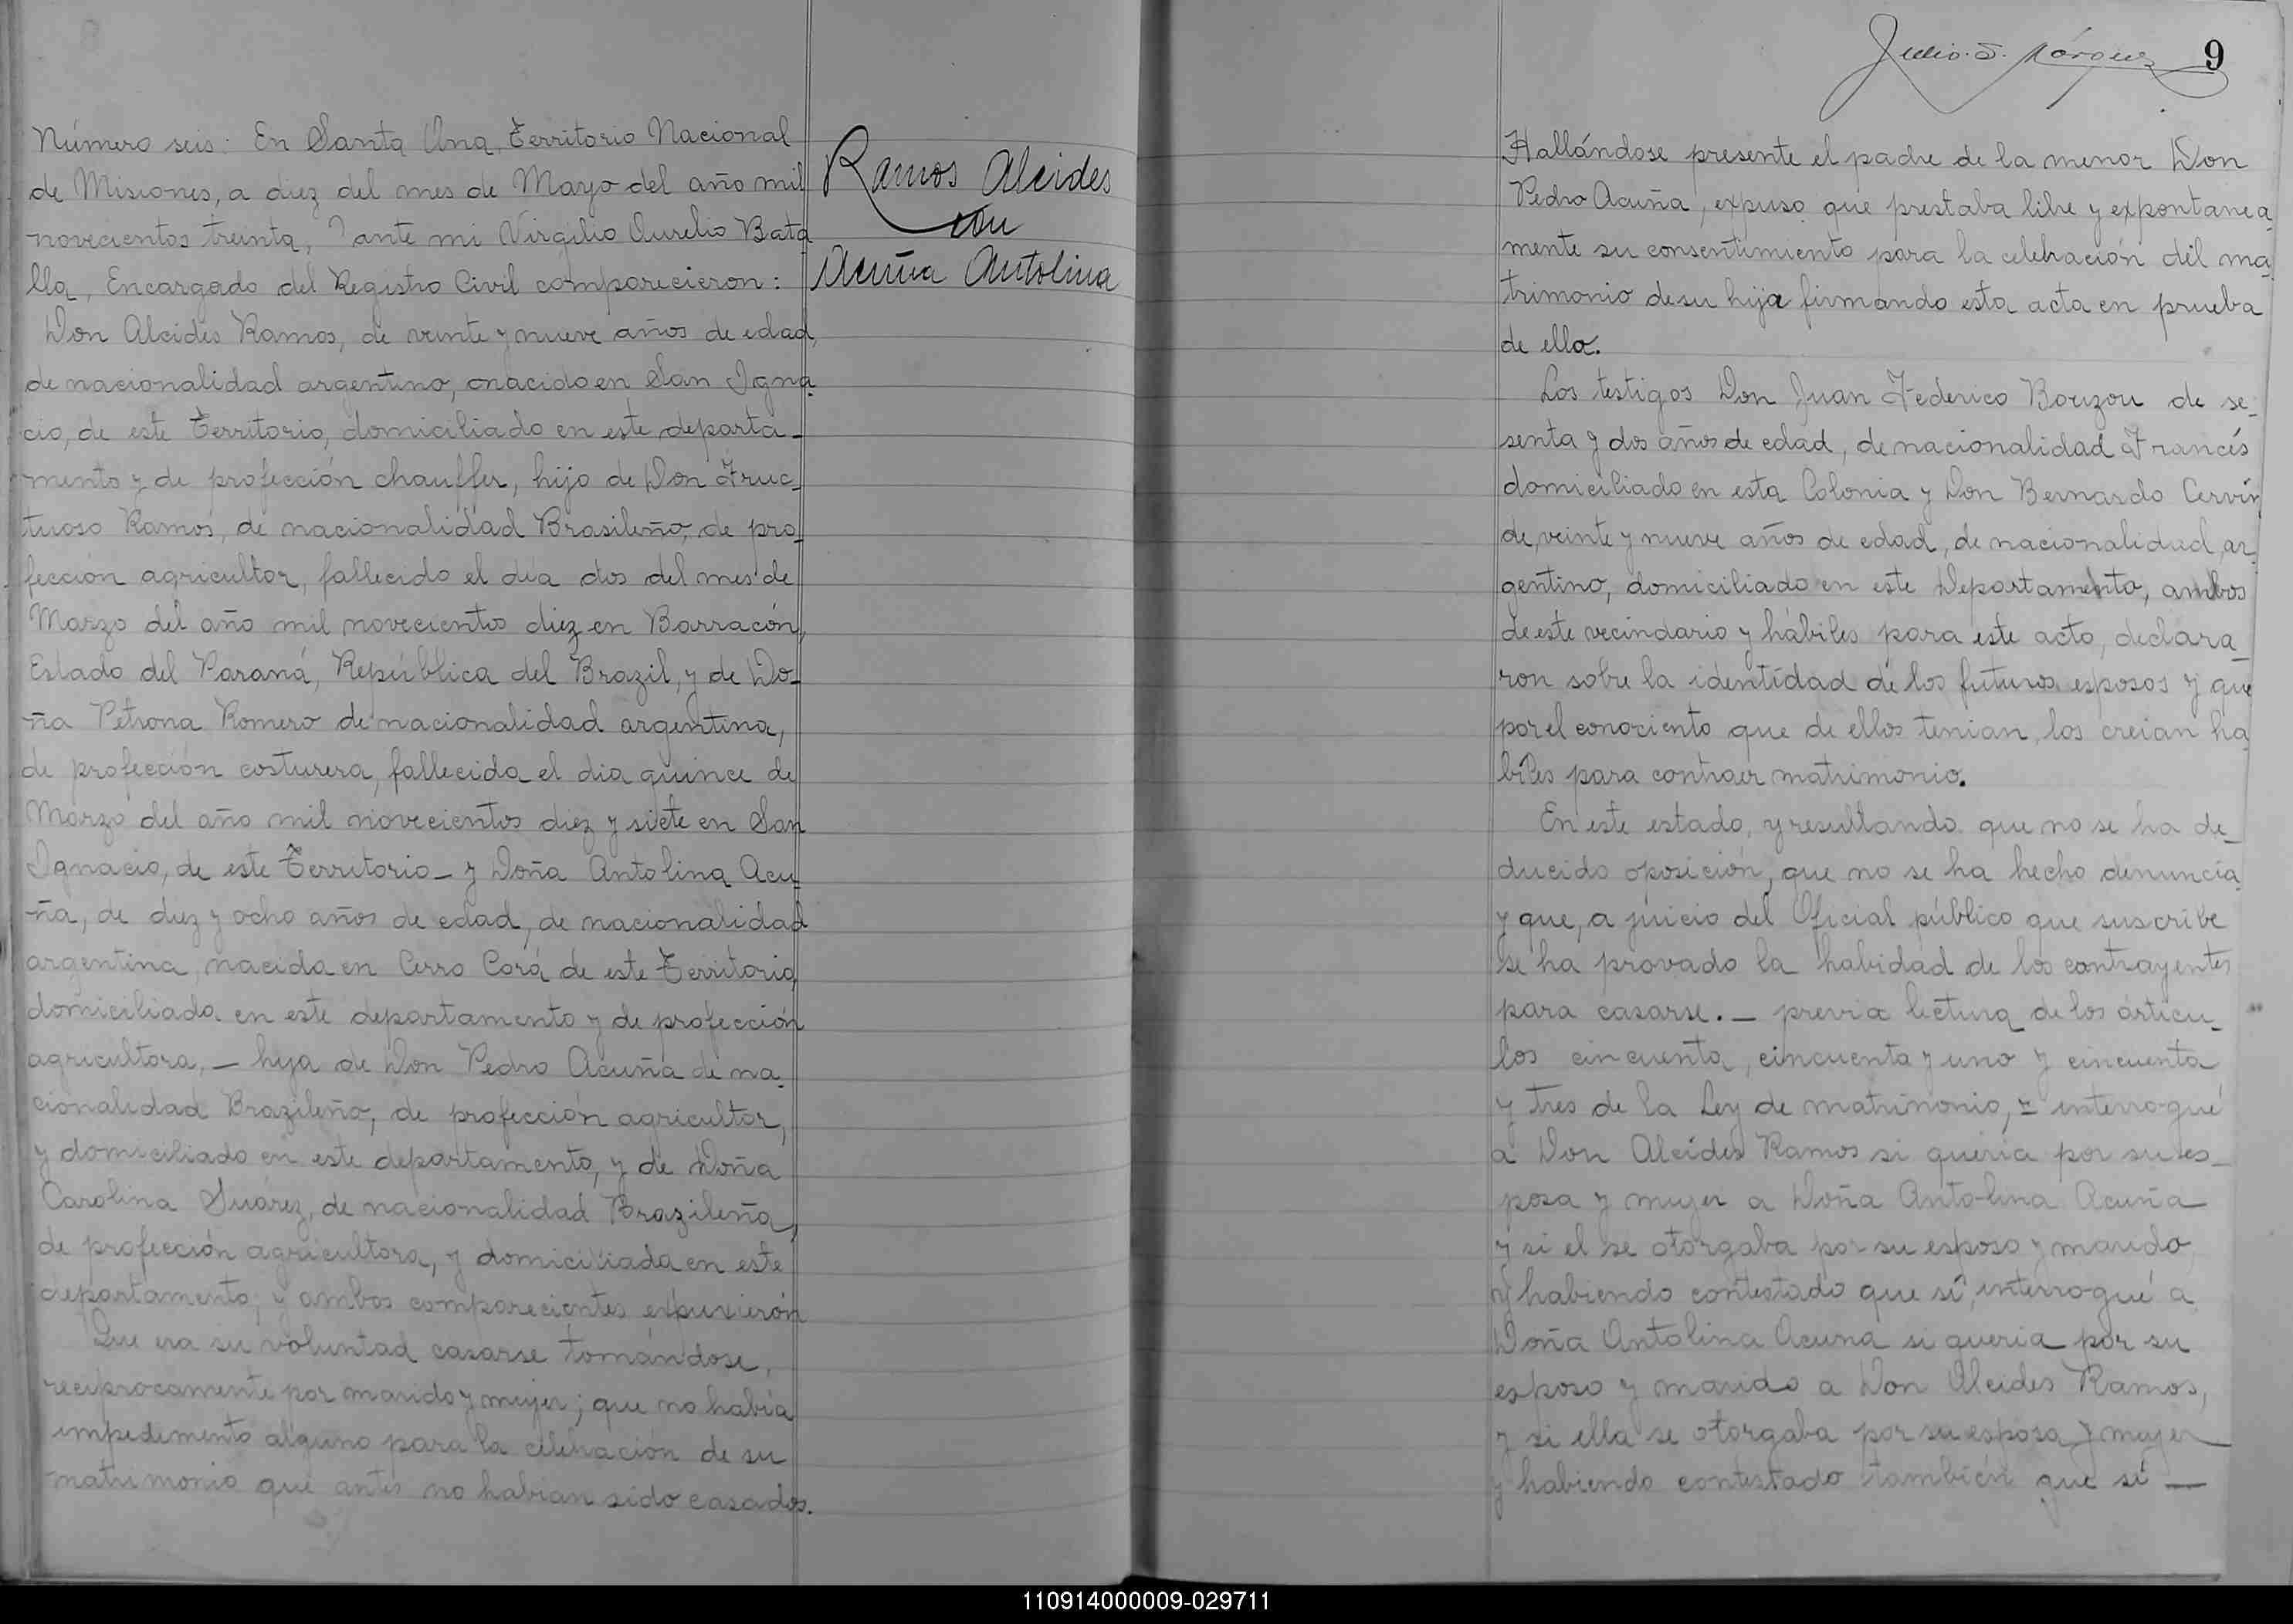 Número seis: En Santa Ana, Territorio Nacional
de Misiones, a diez del mes de Mayo del año mil
novecientos treinta, ante mi Virgilio Aurelio Bata
lla, Encargado del Registro Civil comparecieron:
Don Alcides Ramos, de veinte y nueve años de edad,
de nacionalidad argentino, nacido en San Igna
cio, de este Territorio, domiciliado en este departa-
mento y de profección chauffer, hijo de Don Fruc-
tuoso Ramos, de nacionalidad Brasileño, de pro-
fección agricultor, fallecido el dia dos del mes de
Marzo del año mil novecientos diez en Barracón,
Estado del Paraná, República del Brazil, y de Do-
ña Petrona Romero de nacionalidad argentina,
de profección costurera, fallecida el dia quince de
Marzo del año mil novecientos diez y siete en San
Ignacio, de este Territorio - y Doña Antolina Acu-
ña, de diez y ocho años de edad, de nacionalidad
argentina, nacida en Cerro Corá de este Territorio,
domiciliada en este departamento y de profección
agricultora, - hija de Don Pedro Acuña de na-
cionalidad Brazileño, de profección agricultor,
y domiciliado en este departamento, y de Doña
Carolina Suárez, de nacionalidad Brazileña,
de profección agricultora, y domiciliada en este
departamento, y ambos comparecientes expusierón
Que era su voluntad casarse tomándose,
reciprocamente por marido y mujer; que no había
impedimento alguno para la celebración de su
matrimonio que antes no habian sido casados.
Ramos Alcides
con
Acuña Antolina
Julio S. Márquez 9
Hallándose presente el padre de la menor Don
Pedro Acuña, expuso que prestaba libre y expontanea
mente su consentimiento para la celebración del ma-
trimonio de su hija firmando esta acta en prueba
de ello.
Los testigos Don Juan Federico Bouzou de se-
senta y dos años de edad, de nacionalidad Francés
domiciliado en esta Colonia y Don Bernardo Cervín
de veinte y nueve años de edad, de nacionalidad ar-
gentino, domiciliado en este Departamento, ambos
de este vecindario y hábiles para este acto, declara-
ron sobre la identidad de los futuros esposos y que
por el conociento que de ellos tenian, los creian há
biles para contraer matrimonio.
En este estado, y resultando que no se ha de-
ducido oposición, que no se ha hecho denuncia
y que, a juicio del Oficial público que suscribe
se ha provado la habidad de los contrayentes
para casarse. - previa lectura de los árticu-
los cincuenta, cincuenta y uno y cincuenta
y tres de la Ley de matrimonio, - interrogué
a Don Alcides Ramos si queria por su es-
posa y mujer a Doña Antolina Acuña
y si el se otorgaba por su esposo y marido,
y habiendo contestado que sí, interrogué a
Doña Antolina Acuna si queria por su
esposo y marido a Don Alcides Ramos,
y si ella se otorgaba por su esposa y mujer
y habiendo contestado también que sí -
110914000009-029711